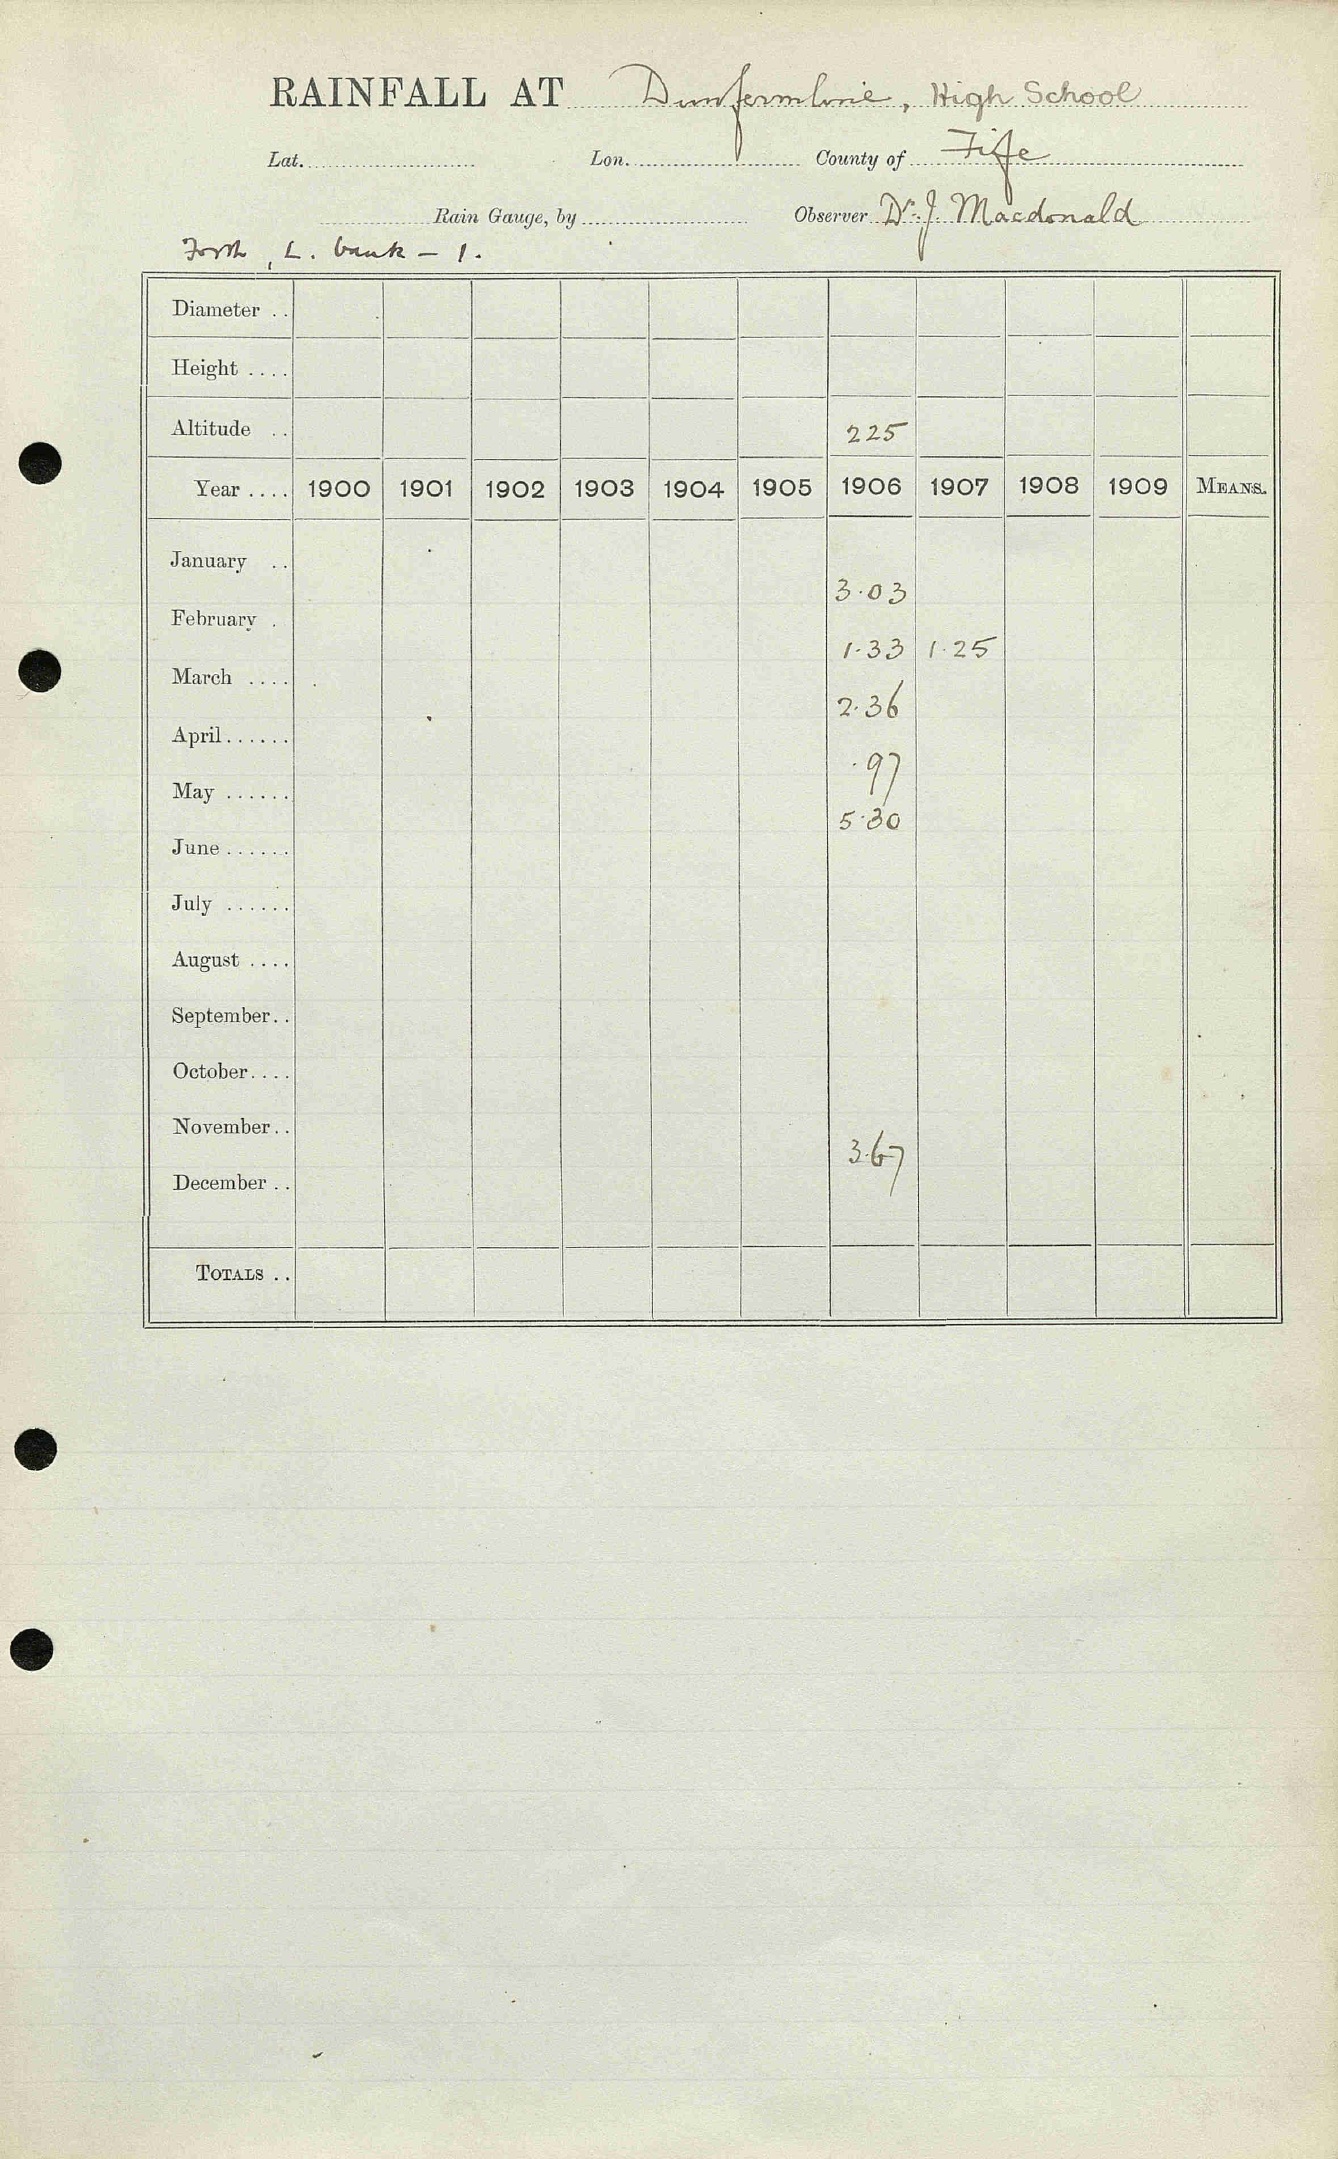 RAINFALL AT Dunfermline, High School
Lat. Lon. County of Fife
Rain Gauge, by Observer Dr. J. Macdonald
Forth, L. bank - 1.
Diameter ..
Height ....
Altitude .. 225
Year .... 1900 1901 1902 1903 1904 1905 1906 1907 1908 1909 MEANS.
January ..
3.03
February .
1.33 1.25
March ....
2.36
April......
.97
May ......
5.30
June ......
July ......
August ....
September..
October....
November..
3.67
December ..
TOTALS ..